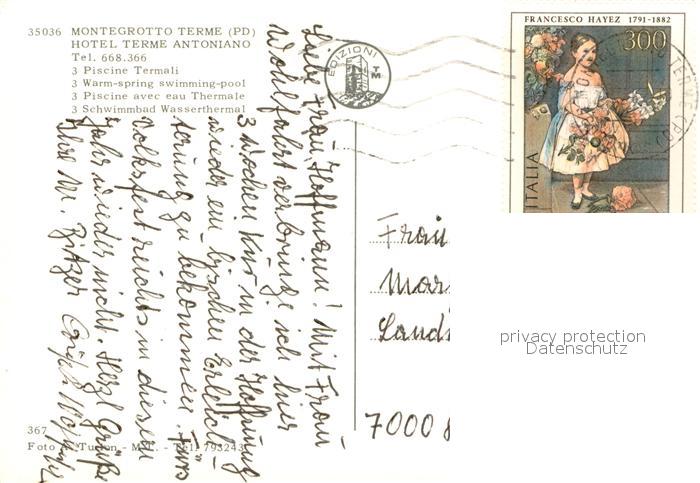 35036 MONTEGROTTO TERME (PD)
HOTEL TERME ANTONIANO
Tel. 668.366
3 Piscine Termali
3 Warm-spring swimming-pool
3 Piscine avec eau Thermale
3 Schwimmbad Wasserthermal
EDIZIONI
TM
FRANCESCO HAYEZ 1791-1882
300
ITALIA
TERME (PD)
Liebe Frau Hoffmann! Mit Frau
Wohlfahrt verbringe ich hier
3 Wochen Kur in der Hoffnung
wieder ein bisschen Erleich-
terung zu bekommen. Fürs
Volksfest reichts in diesem
Jahr wieder nicht. Herzl. Grüße
Ihre M.
Frau
7000
privacy protection
Datenschutz
367
Foto - Tel. 793243